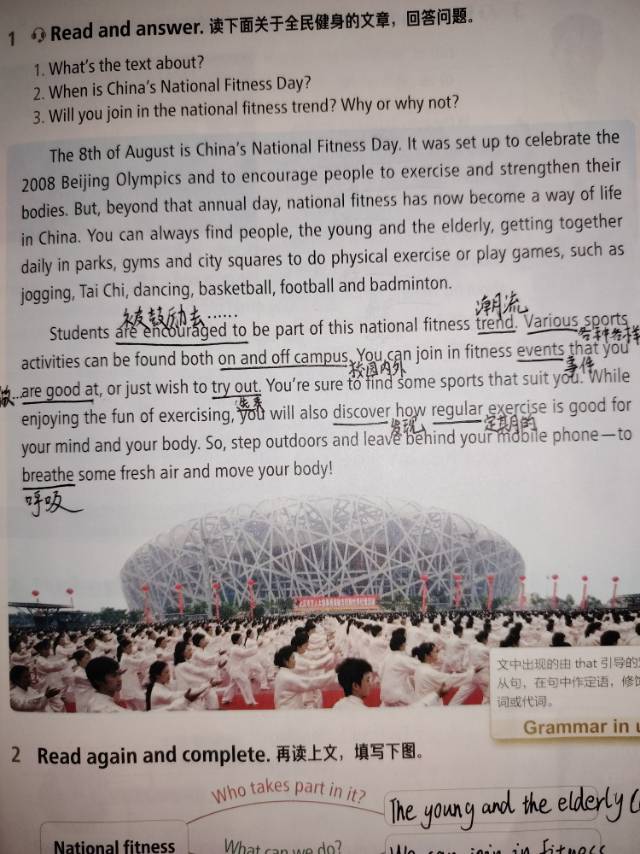 1 Read and answer. 读下面关于全民健身的文章，回答问题。
1. What's the text about?
2. When is China's National Fitness Day?
3. Will you join in the national fitness trend? Why or why not?
The 8th of August is China's National Fitness Day. It was set up to celebrate the
2008 Beijing Olympics and to encourage people to exercise and strengthen their
bodies. But, beyond that annual day, national fitness has now become a way of life
in China. You can always find people, the young and the elderly, getting together
daily in parks, gyms and city squares to do physical exercise or play games, such as
jogging, Tai Chi, dancing, basketball, football and badminton.
被鼓励去…… 潮流
Students are encouraged to be part of this national fitness trend. Various sports
各种各样
activities can be found both on and off campus. You can join in fitness events that you
校园内外 事件
are good at, or just wish to try out. You're sure to find some sports that suit you. While
enjoying the fun of exercising, you will also discover how regular exercise is good for
发现 定期的
your mind and your body. So, step outdoors and leave behind your mobile phone—to
breathe some fresh air and move your body!
呼吸
文中出现的由 that 引导的
从句，在句中作定语，修
词或代词。
Grammar in u
2 Read again and complete. 再读上文，填写下图。
Who takes part in it?
The young and the elderly
National fitness
What can we do?
We can join in fitness